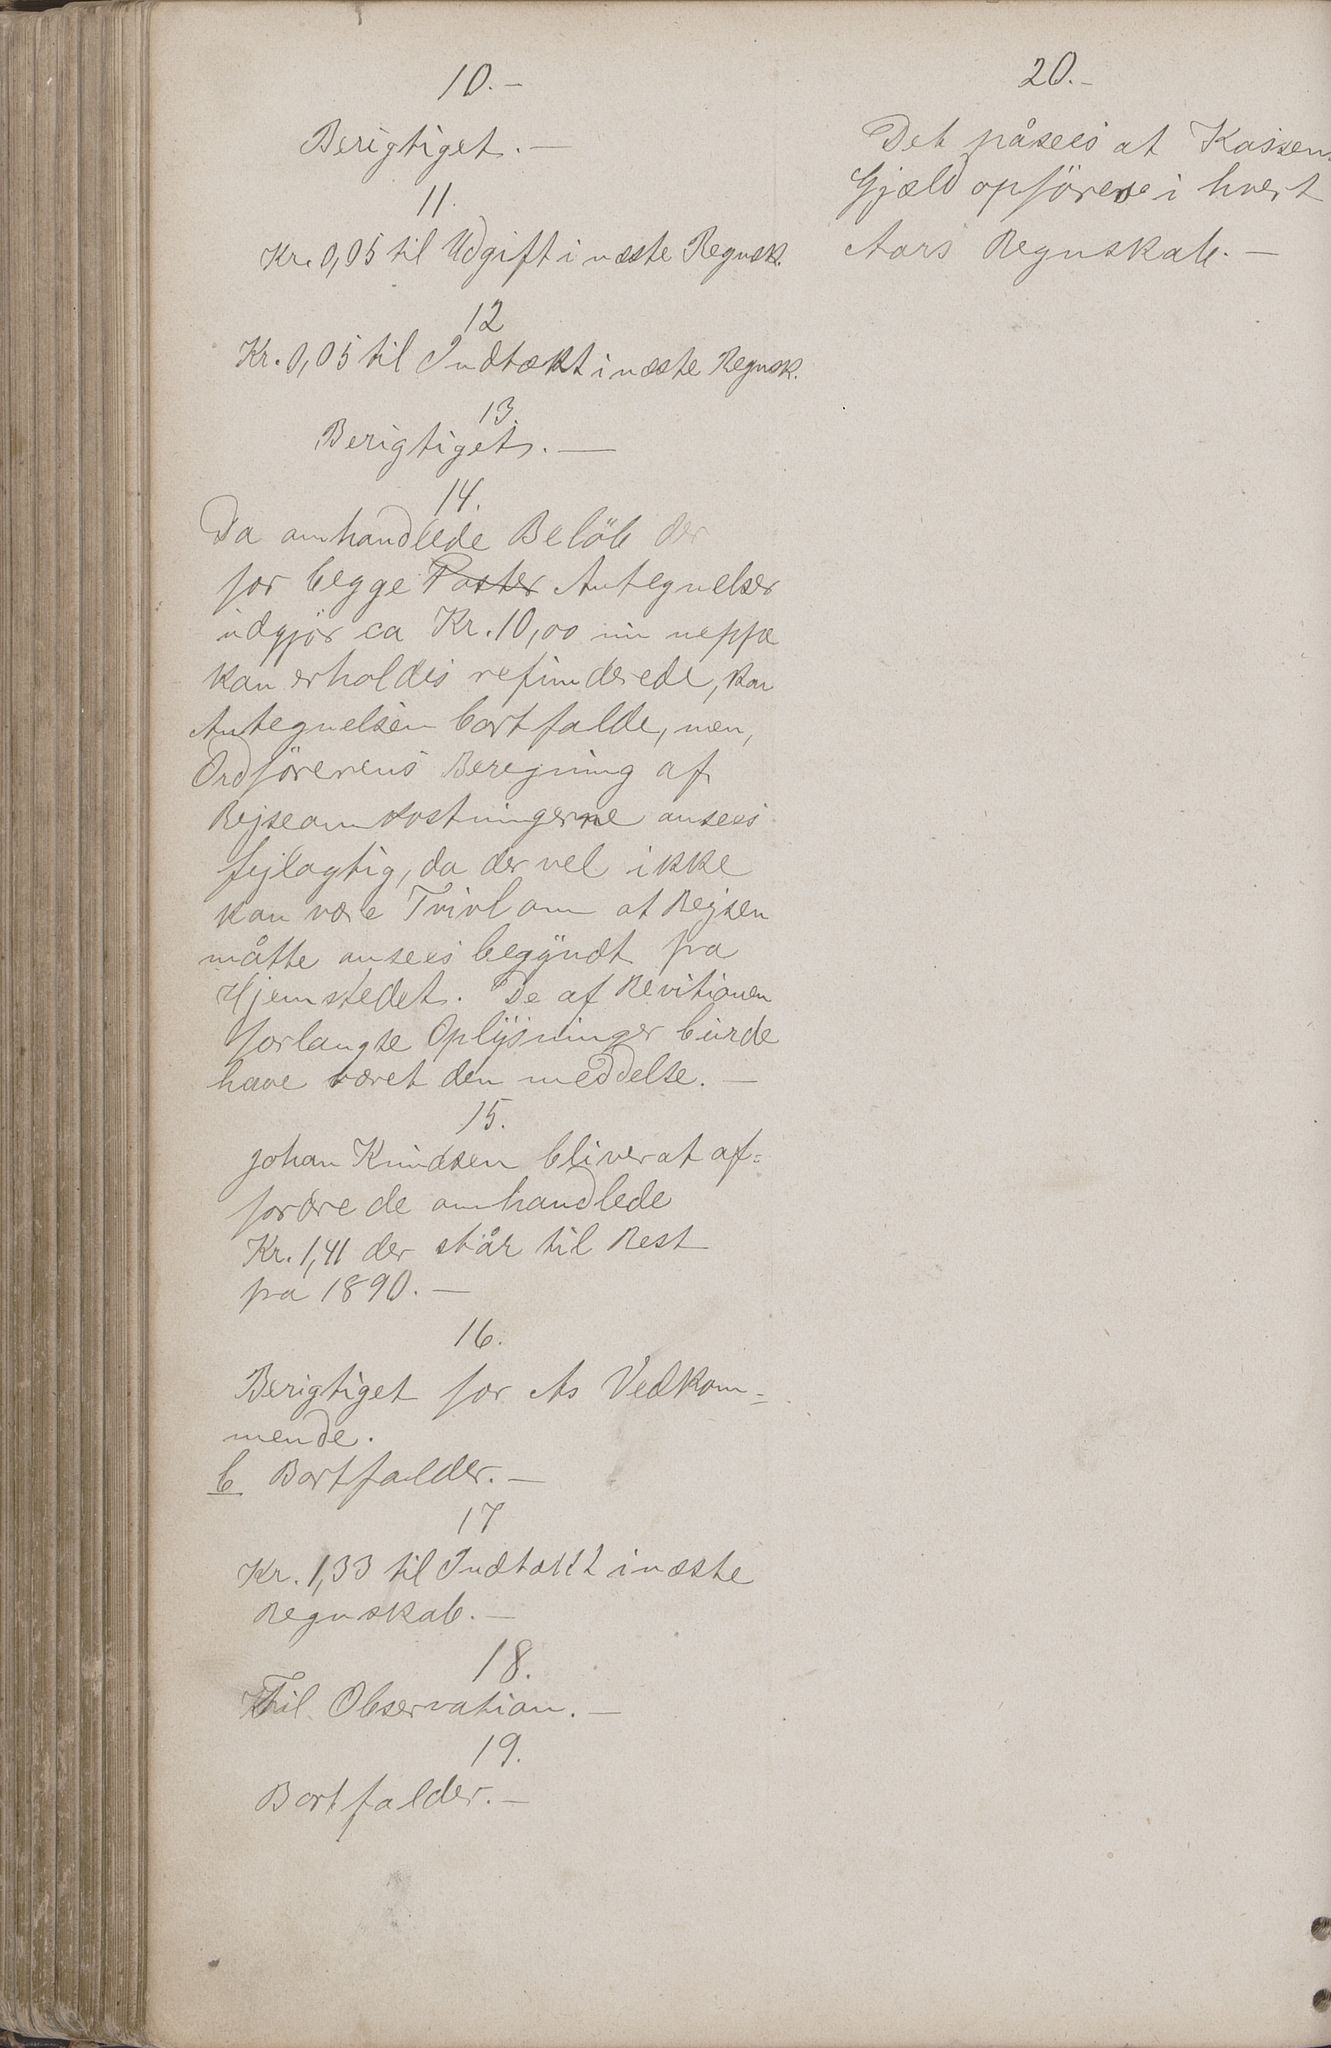 10.-
Berigtiget. -
11.
Kr. 0,05 til Udgift i næste Regnsk.
12
Kr. 0,05 til Indtækt i næste Regnsk.
13.
Berigtiget. -
14.
Da omhandlede Beløb der
for begge Poster Antegnelser
udgjör ca Kr. 10,00 nu neppe
kan erholdes refunderede, kan
Antegnelsen bortfalde, men,
Ordförerens Beregning af
Rejseomkostningerne ansees
fejlagtig, da der vel ikke
kan være Tvivl om at Rejsen
måtte ansees begyndt fra
Hjemstedet. De af Revitionen
forlangte Oplysninger burde
have været den meddelse. -
15.
Johan Knudsen bliver at af=
fordre de omhandlede
Kr. 1,41 der står til Rest
fra 1890. -
16.
Berigtiget for As Vedkom=
mende.
b Bortfalder. -
17
Kr. 1,33 til Indtækt i næste
Regnskab. -
18.
Til Observation. -
19.
Bortfalder. -
20.-
Det påsees at Kassens
Gjæld opföres i hvert
Aars Regnskab. -